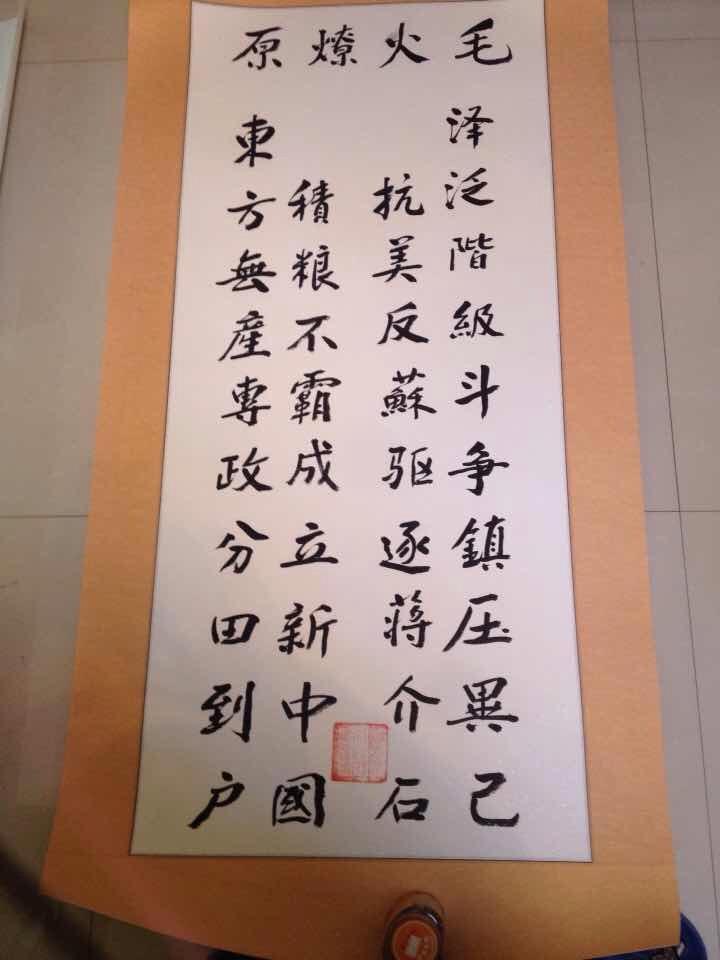 毛泽泛階級斗争鎮压異己
火抗美反蘇驱逐蒋介石
燎積粮不霸成立新中國
原東方無產專政分田到户